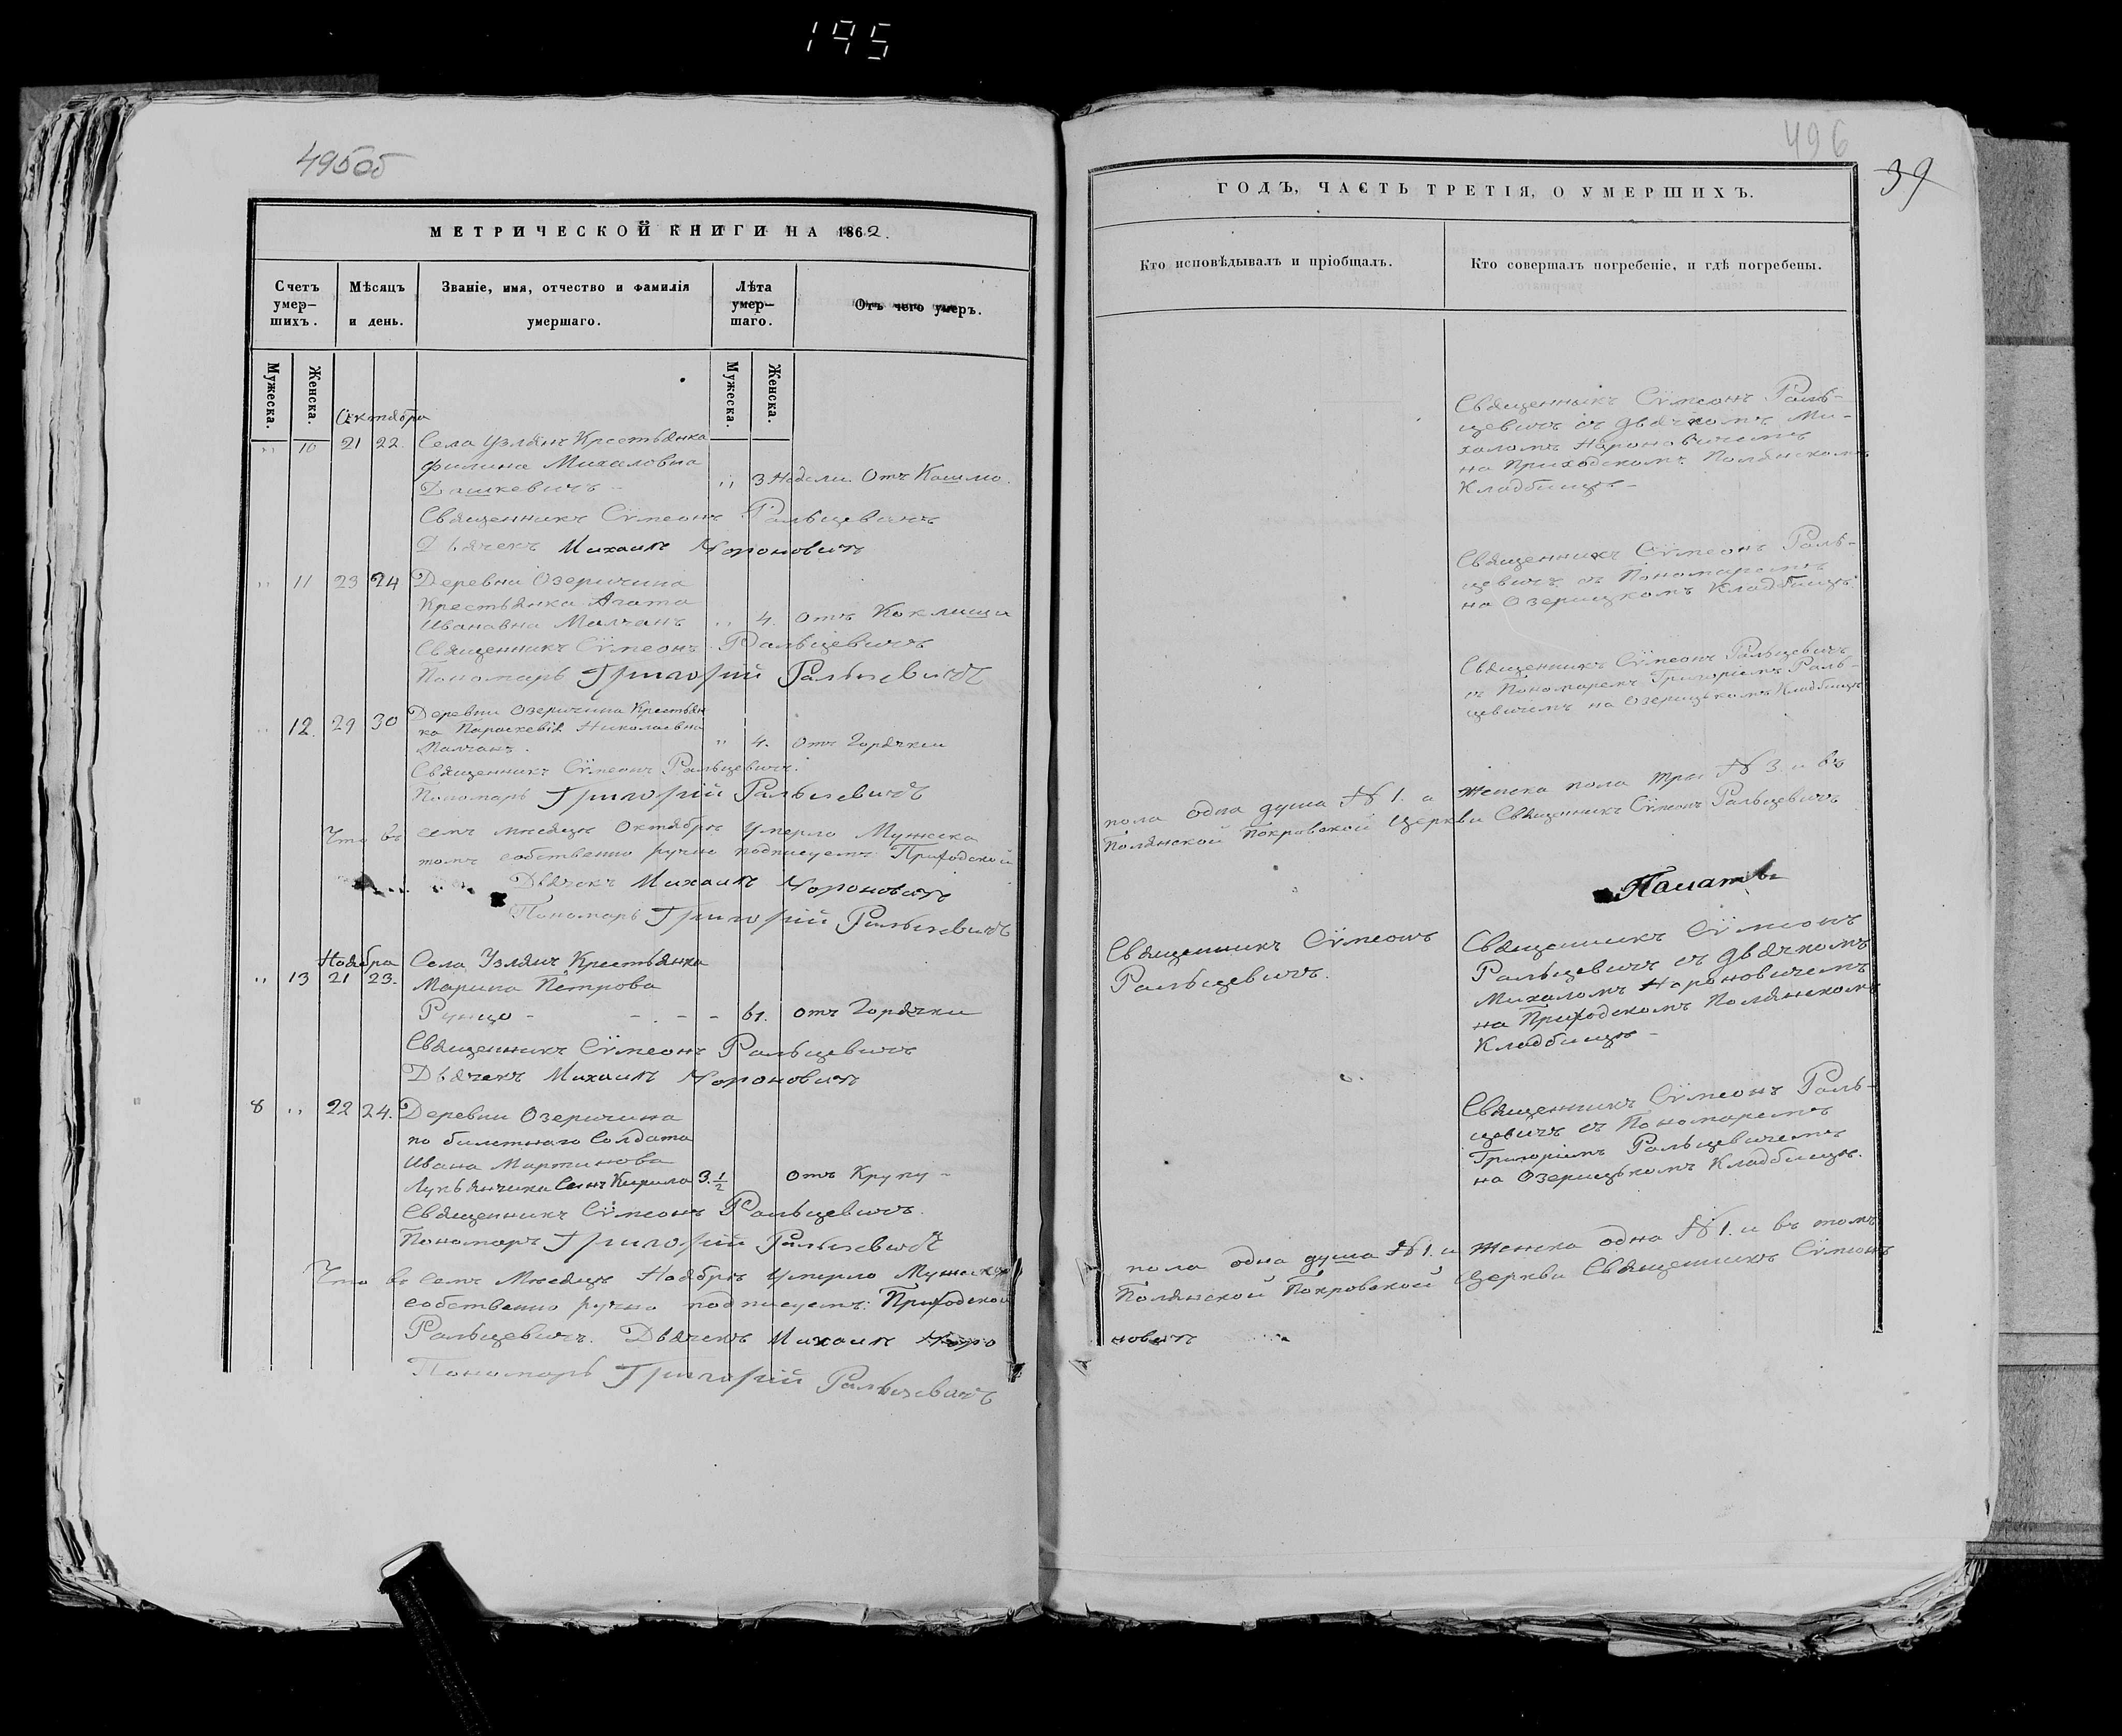 195
495об
МЕТРИЧЕСКОЙ КНИГИ НА 1862.
Счетъ умер–шихъ.
Мѣсяцъ и день.
Званіе, имя, отчество и фамилія умершаго.
Лѣта умер–шаго.
Отъ чего умеръ.
Мужеска.
Женска.
Мужеска.
Женска.
Октября
" 10 21 22. Села Узлянъ Крестьянка
Михаловна
Дашкевичъ – " 3 Недели. Отъ Кашлю.
Священникъ Сѵмеонъ Ральцевичъ
Дьячекъ Михаилъ Нороновичъ
" 11 23 24 Деревни Озеричина
Крестьянка Агата
Ивановна Малчанъ " 4. отъ Коклиша
Священникъ Сѵмеонъ Ральцевичъ
Пономарь Григорій Ральцевичъ
" 12. 29 30 Деревни Озеричина Крестьян
ка Параскевія Николаевна
Малчанъ. " 4. отъ Горячки
Священникъ Сѵмеонъ Ральцевичъ.
Пономарь Григорій Ральцевичъ
Что въ семъ мнсяцн Октябрн Умерло Мужеска
томъ собственно ручно подписуемъ: Приходской
Дьячекъ Михаилъ Нороновичъ
Пономарь Григорій Ральцевичъ
Ноября
" 13 21 23. Села Узлянъ Крестьянка
Марина Петрова
Рунцо – – – – 61. отъ Горячки
Священникъ Сѵмеонъ Ральцевичъ
Дьячекъ Михаилъ Нороновичъ
8 " 22 24. Деревни Озеричина
по билетнаго Солдата
Ивана Мартинова
Лукьянчика Синъ Кирила 3.½ отъ Крупу –
Священникъ Сѵмеонъ Ральцевичъ.
Пономарь Григорій Ральцевичъ
Что въ семъ Мнсяцн Ноябрн Умерло Мужеска
собственно ручно подписуемъ: Приходской
Ральцевичъ. Дьячекъ Михаилъ Норо
Пономарь Григорій Ральцевичъ
496
39
ГОДЪ, ЧАСТЬ ТРЕТІЯ, О УМЕРШИХЪ.
Кто исповѣдывалъ и пріобщалъ.
Кто совершалъ погребеніе, и гдѣ погребены.
Священникъ Сѵмеонъ Раль–
цевичъ съ дьячкомъ Ми–
халомъ Нороновичемъ
на Приходскомъ Полянскомъ
Кладбищн –
Священникъ Сѵмеонъ Раль–
цевичъ съ Пономаремъ
на Озерицкомъ Кладбищн.
Священникъ Сѵмеонъ Ральцевичъ
съ Пономаремъ Григоріемъ Раль–
цевичемъ на Озерицькомъ Кладбищн
пола одна душа № 1. а женска пола три № 3. и въ
Полянской Покровской Церкви Священникъ Сѵмеонъ Ральцевичъ
Священникъ Сѵмеонъ
Ральцевичъ.
Священникъ Сѵмеонъ
Ральцевичъ съ дьячкомъ
Михаломъ Нороновичемъ
на Приходскомъ Полянскомъ
Кладбищн –
Священникъ Сѵмеонъ Раль–
цевичъ съ Пономаремъ
Григоріемъ Ральцевичемъ
на Озерицькомъ Кладбищн.
пола одна душа № 1. и женска одна № 1. и въ томъ
Полянской Покровской Церкви Священникъ Сѵмеонъ
новичъ